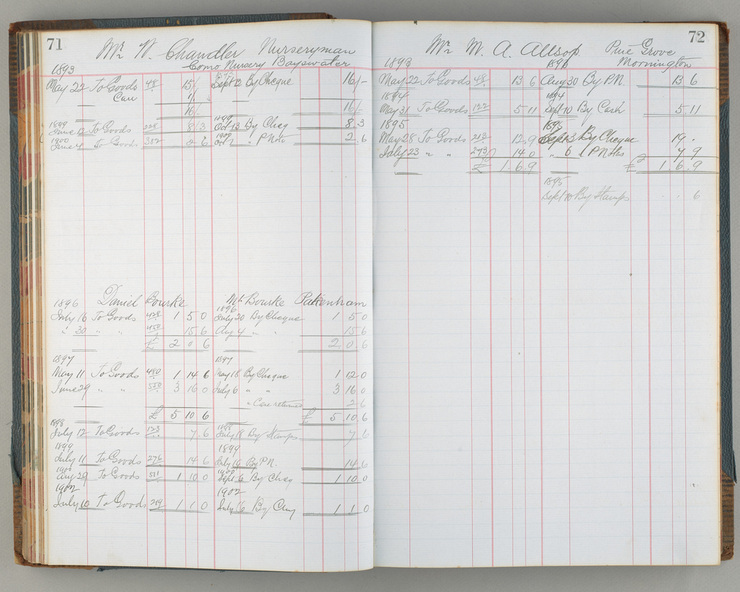 71
Mr W. Chandler Nurseryman
Como Nursery Bayswater
1893
May 22 To Goods 48 15/- Sept 12 By Cheque 16/-
Case 1/
16/ 16/
1899 1899
June To Goods 8 3 Oct 12 By Cheq 8 3
1900 1900
To Goods 312 2 6 Oct P Note 2. 6
1896 Daniel Bourke Mt Bourke Pakenham
1896
July 16 To Goods 1 5 0 July 20 By Cheque 1 5 0
" 30 " " 15 6 Aug 4 " " 15 6
£ 2 0 6 2 0 6
1897 1897
May 11 To Goods 489 1 14 6 May 18 By Cheque 1 12 0
June 29 " " 533 3 16 0 July 6 " " 3 16 0
" Case returned 2 6
£ 5 10 6 £ 5 10 6
1898 1898
July 12 To Goods 123 7. 6 July 18 By Stamps 7. 6
1899 1899
July 11 To Goods 276 14 6 July 14 By P.N. 14 6
1900 1900
Aug 29 To Goods 1 10 0 Sept 6 By Cheq 1 10 0
1902 1902
July 10 To Goods 1 1 0 July 16 By Cheq 1 1 0
72
Mr M. A. Allsop Pine Grove
Mornington
1893 1893
May 22 To Goods 48 13 6 Aug 30 By P.N. 13 6
1894 1894
May 31 To Goods 5 11 Sept 10 By Cash 5 11
1895 1895
May 28 To Goods 12. 9 Sept 3 By Cheque 19 -
July 23 " " 273 14 0 " 6 " P Notes 7. 9
£ 1. 6. 9 £ 1. 6. 9
1895
Sept 10 By Stamps 6